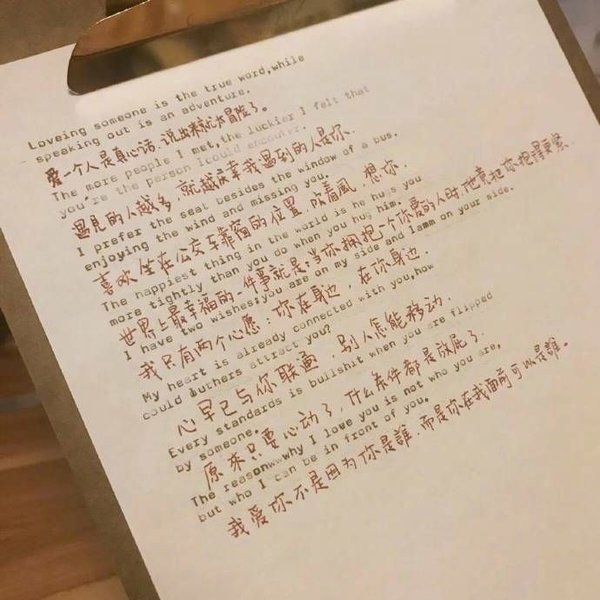 Loveing someone is the true word,while
speaking out is an adventure.
爱一个人是真心话、说出来就是大冒险了。
The more people I met,the luckier I felt that
you're the person I could encounter.
遇見的人越多，就越庆幸我遇到的人是你.
I prefer the seat besides the window of a bus.
enjoying the wind and missing you.
喜欢坐在公交车靠窗的位置，吹着風，想你.
The happiest thing in the world is he hugs you
more tightly than you do when you hug him.
世界上最幸福的一件事就是:当你拥抱一个你爱的人时,他竟把你抱得更緊.
I have two wishes:you are on my side and Iamm on your side.
我只有两个心愿：你在身边，在你身边.
My heart is already connected with you,how
could outhers attract you?
心早已与你联通，别人怎能移动.
Every standards is bullshit when you are flipped
by someone.
原来只要心动了，什么条件都是放屁了.
The reasonwwwhy I love you is not who you are,
but who I can be in front of you.
我爱你不是因为你是誰，而是你在我面前可以是誰。